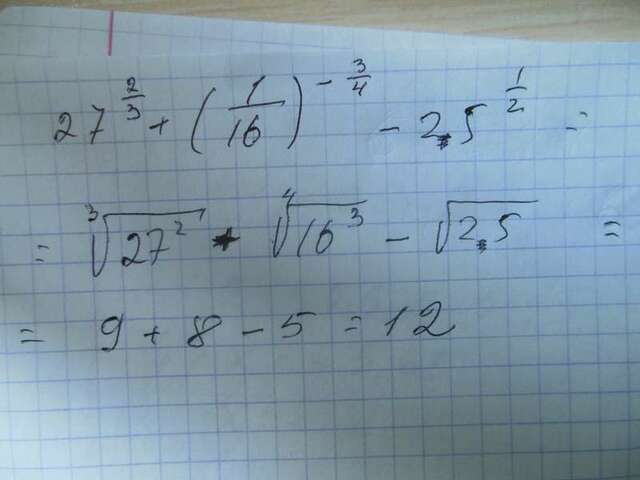 27^{2/3} + (1/16)^{-3/4} - 25^{1/2} =
= ∛27² + ∜16³ - √25 =
= 9 + 8 - 5 = 12